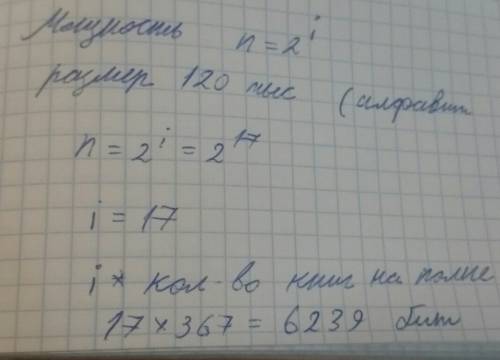 Мощность n = 2^i
размер 120 тыс (алфавит
n = 2^i = 2^17
i = 17
i * кол-во книг на полке
17 × 367 = 6239 бит